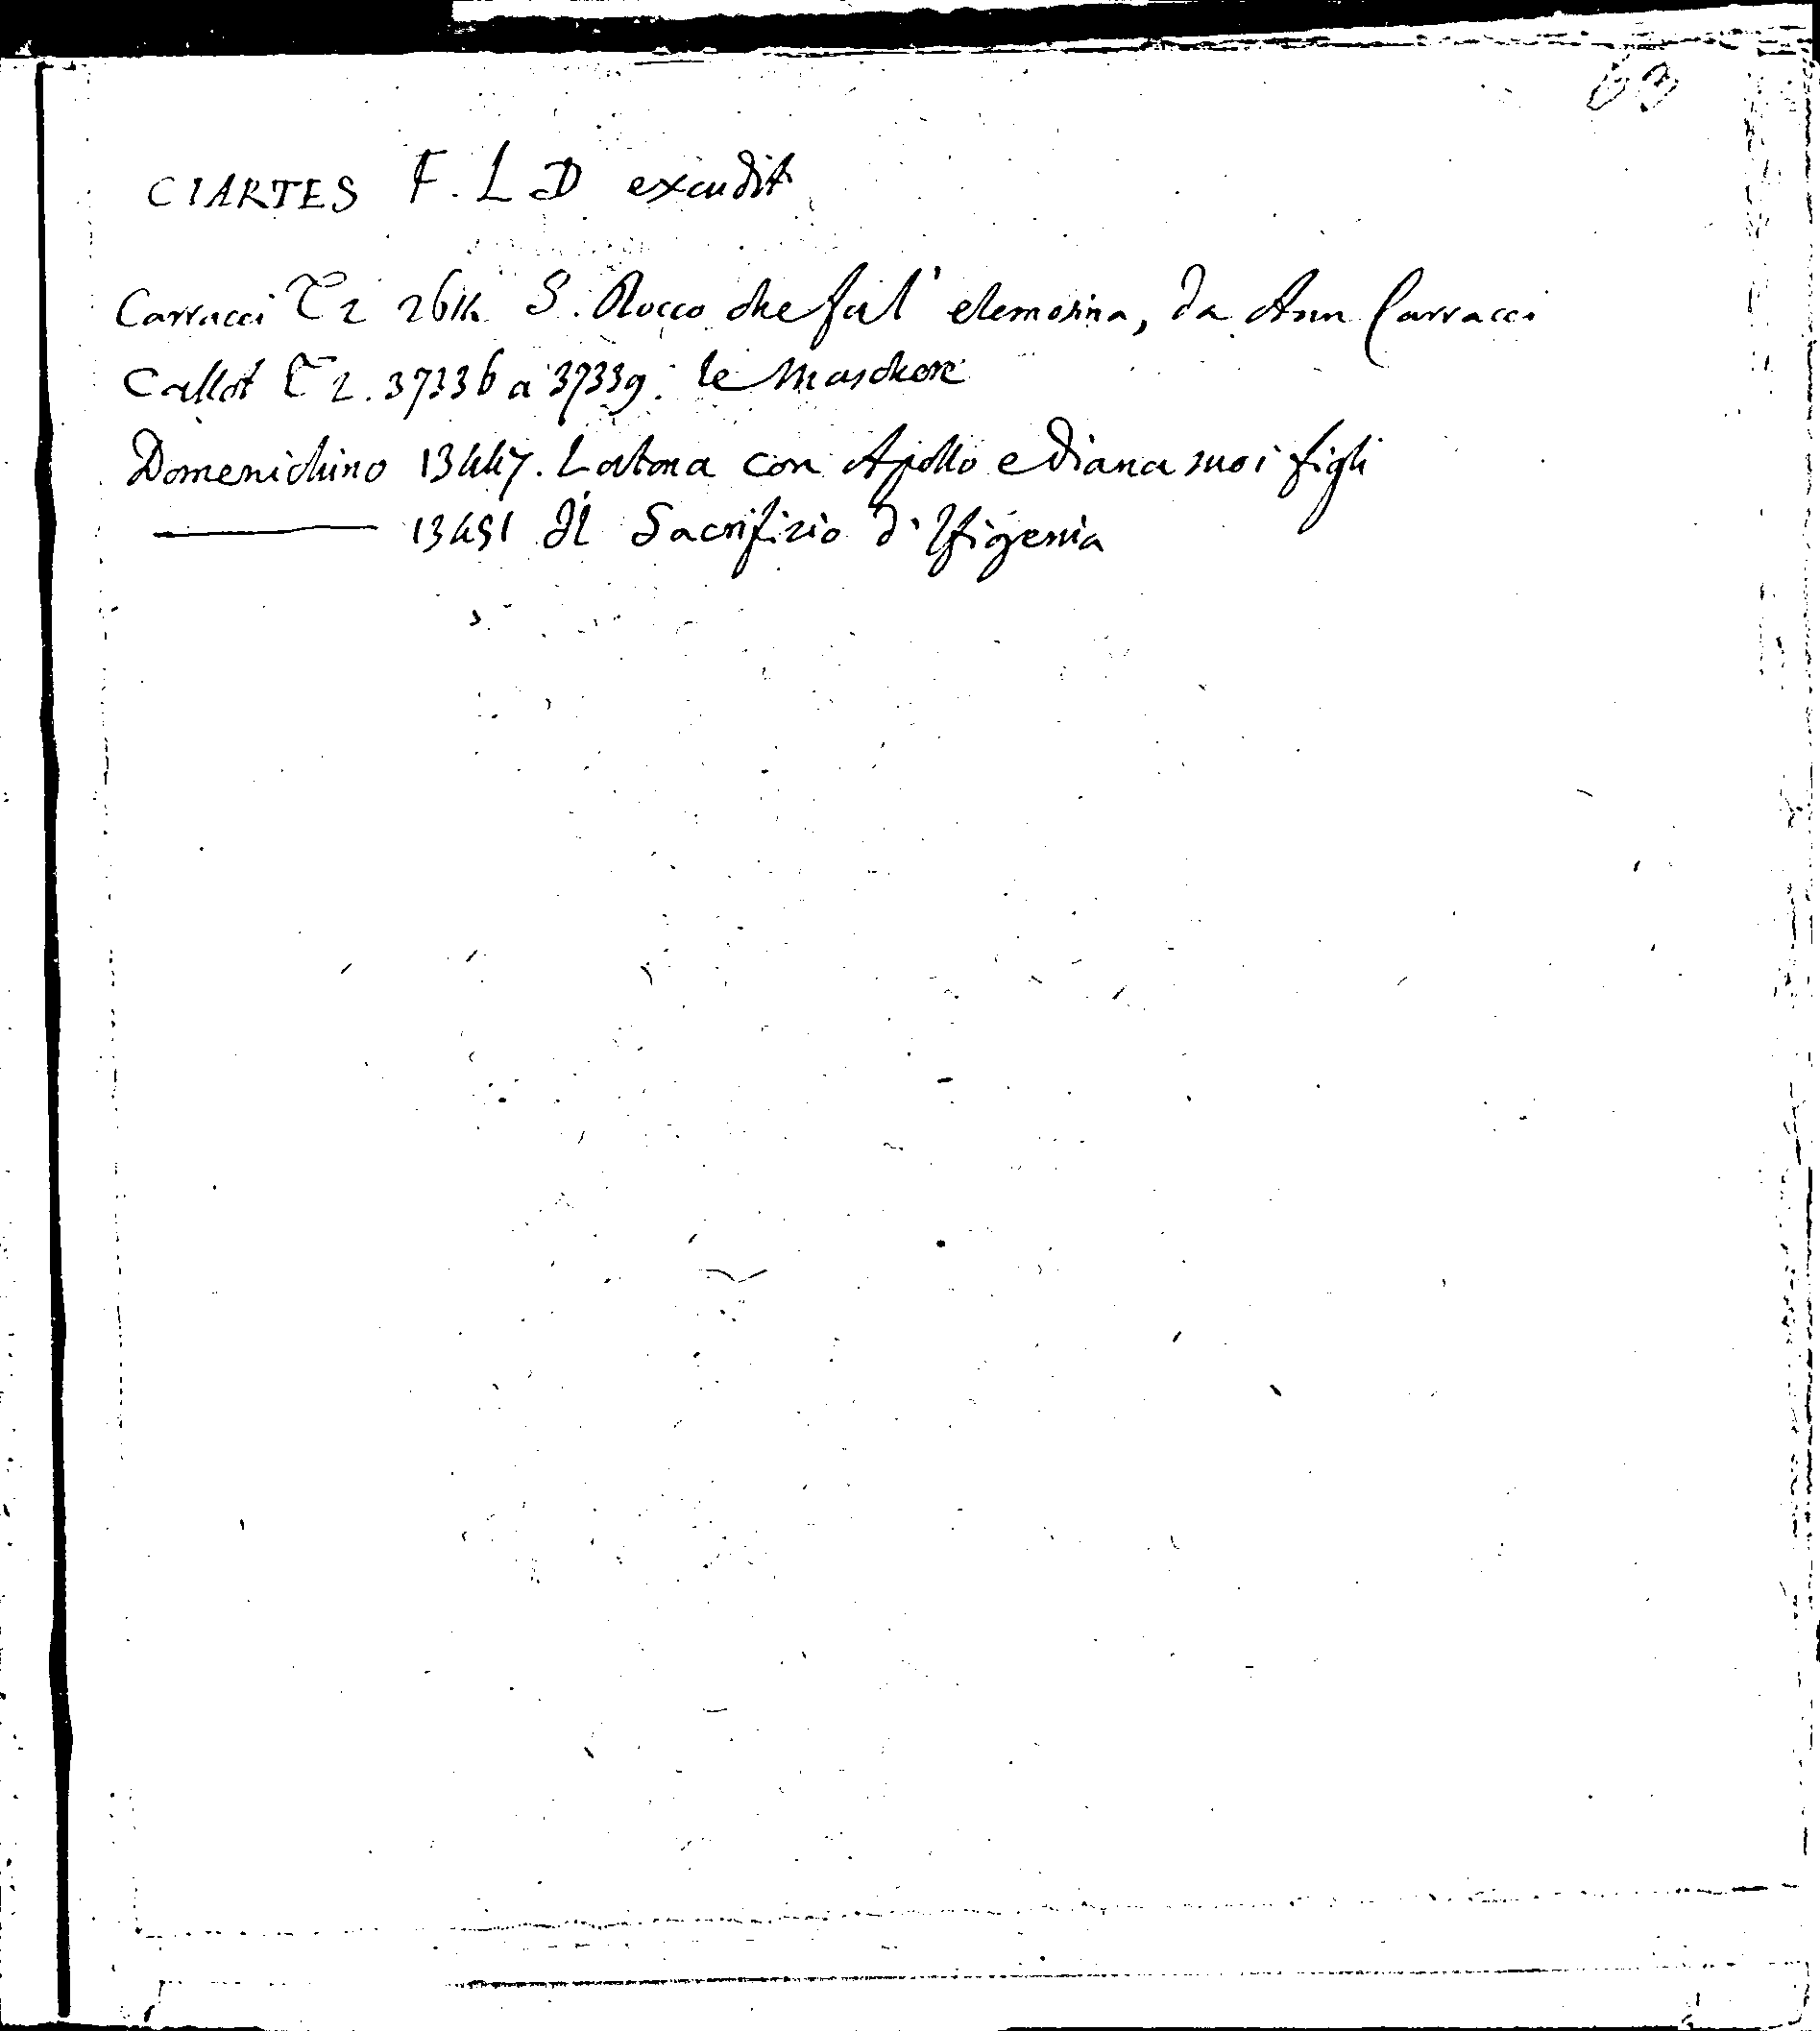 63
CIARTES F. L D excudit
Carracci T 2 2614 S. Rocco che fa l' elemosina, da Ann Carracci
Callot T 2. 37336 a 37339. le Maschere
Domenichino 13447. Latona con Apollo e Diana suoi figli
——— 13451 Il Sacrifizio d' Ifigenia